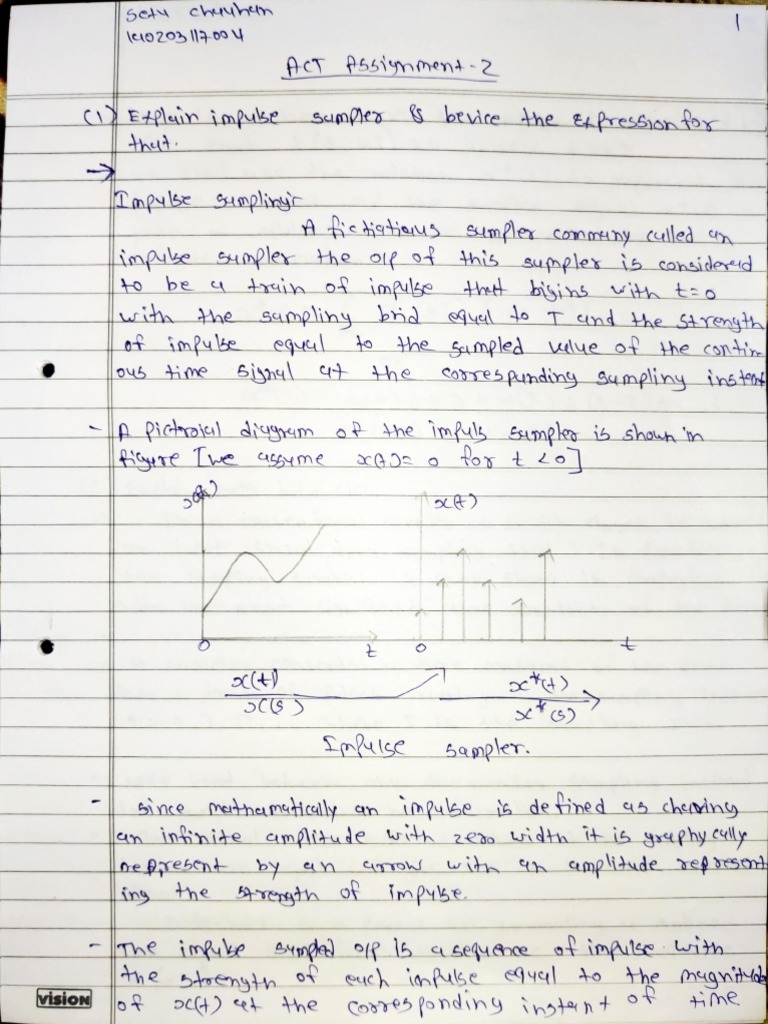 Setu Chauhan
1
190203117004
ACT Assignment-2
(1) Explain impulse sampler & device the expression for
that.
→
Impulse sampling:-
A fictiatious sampler commany called an
impulse sampler the o/p of this sampler is considered
to be a train of impulse that bigins with t=0
with the sampling brid equal to T and the strength
of impulse equal to the sampled value of the contin
ous time signal at the corresponding sampling instant
- A pictroial diagram of the impuls sampler is shown in
figure [we assume x(t)=0 for t<0]
x(t) x(t)
0 t 0 t
x(t) x*(t)
x(s) x*(s)
Impulse sampler.
- since mathamatically an impulse is defined as chaving
an infinite amplitude with zero width it is graphycally
represent by an arrow with an amplitude represent
ing the strength of impulse.
- The impulse sampled o/p is a sequence of impulse with
the strength of each impulse equal to the magnitude
of x(t) at the corresponding instant of time
vision